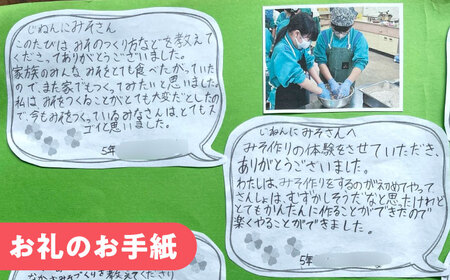 じねんにみそさん
このたびは みそのつくり方などを教えて
くださってありがとうございました。
家族のみんな みそをとても食べたがっていた
ので、また家でもつくってみたいと思いました。
私は、みそをつくることがとても大変だとしたの
で、今もみそをつくっているみなさんは、とてもス
ゴイと思いました。
5年
じねんにみそさんへ
みそ作りの体験をさせていただき、
ありがとうございました。
わたしは、みそ作りをするのが初めてでやって
さんしょは、むずかしそうだなと思ったけれど
とてもかんたんに作ることができたので
楽しくやることができました。
5年
お礼のお手紙
なかさみそづくりを教えてくださり